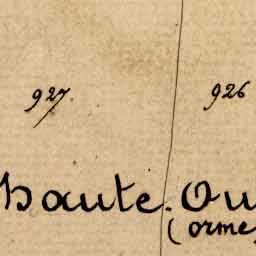 927 926
haute. Ou
(orme)